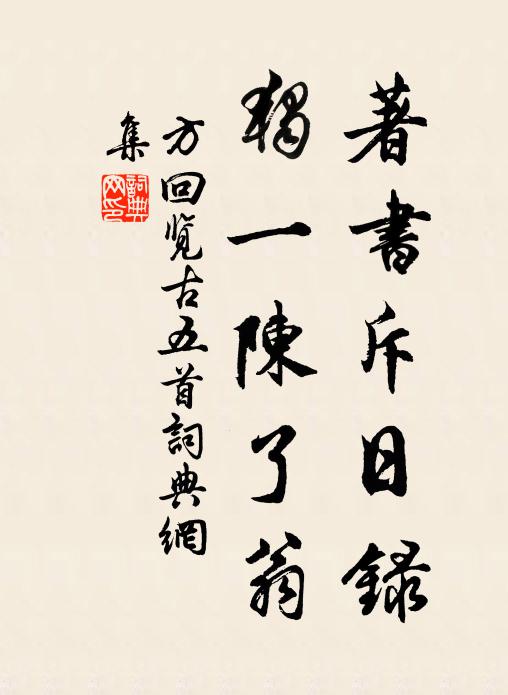 著書斥日録
獨一陳了翁
方回覽古五首詞典網
集
詞典網印